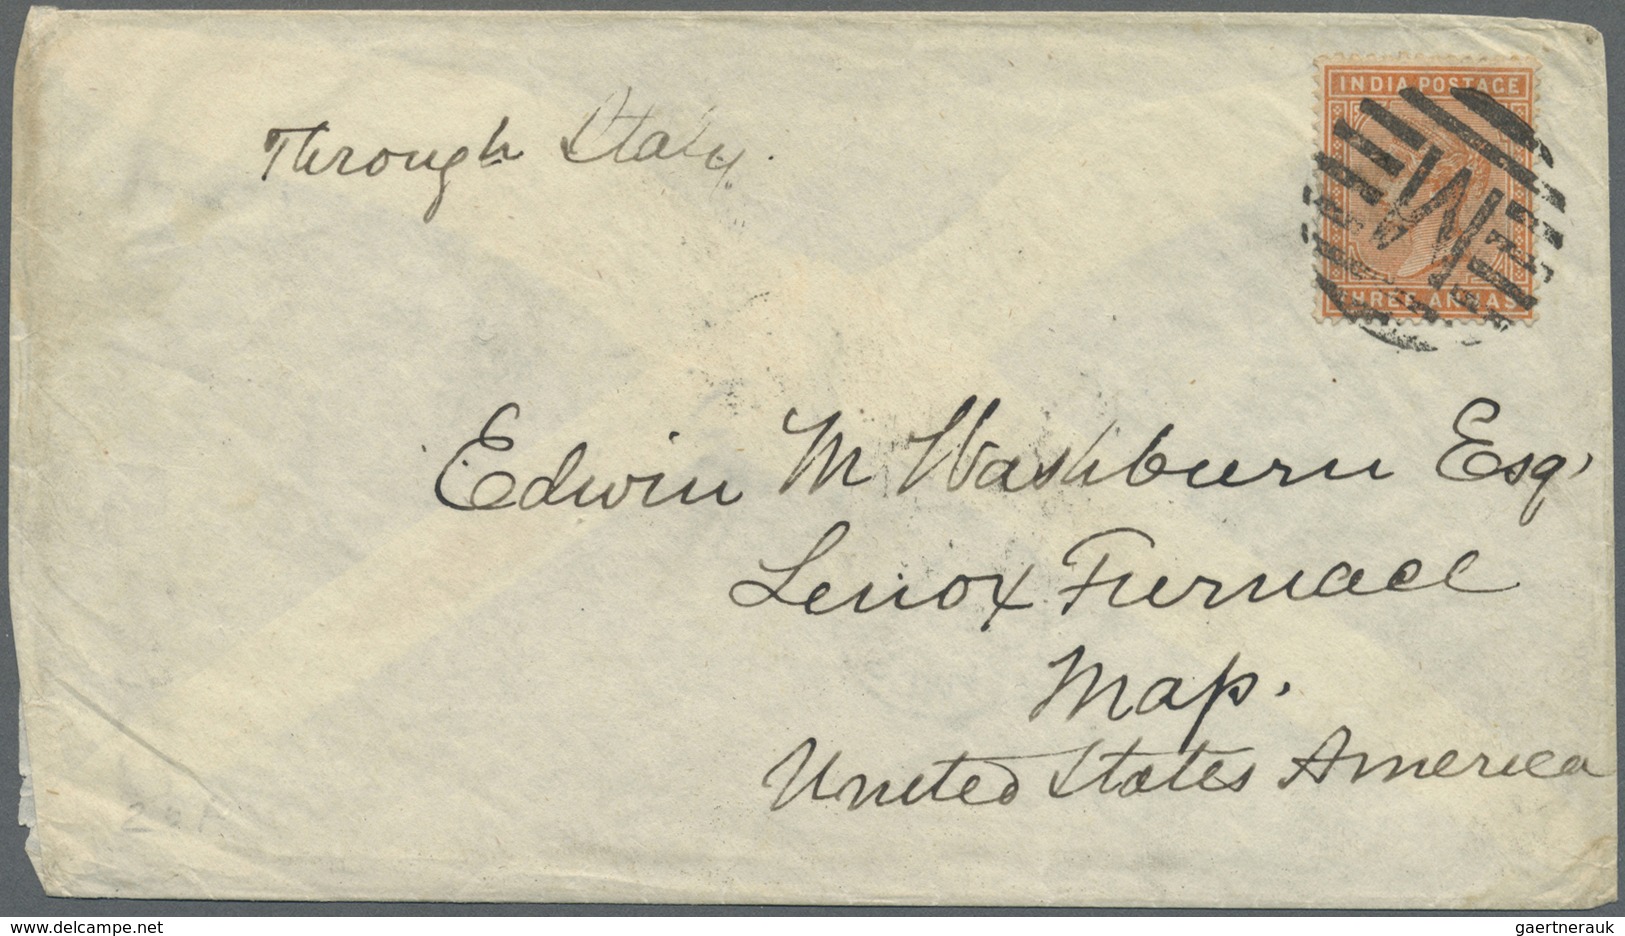 Through Italy.
INDIA POSTAGE
THREE ANNAS
Edwin M Washburn Esq.
Lenox Furnace
Mass.
United States America
delcampe.net
gaertnerauk